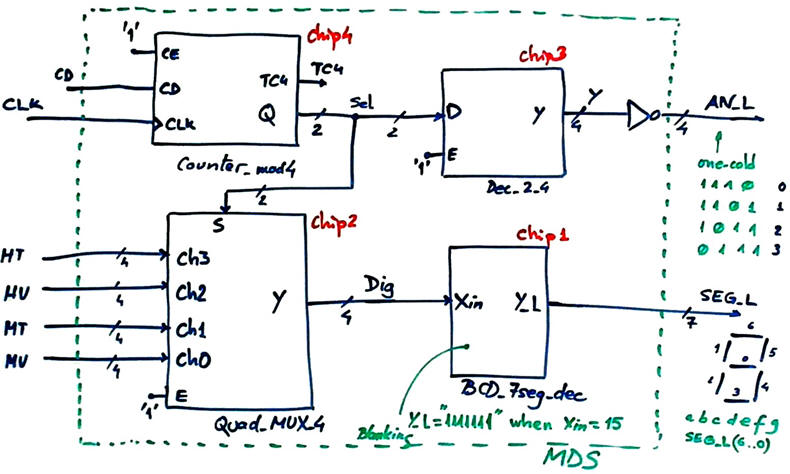 '1'
CE
chip4
CD
CD
TC4
TC4
CLK
CLK
Q
2
Sel
Counter_mod4
chip3
2
D
Y
4
Y
4
AN_L
'1'
E
Dec_2_4
one-cold
1 1 1 0 0
1 1 0 1 1
1 0 1 1 2
0 1 1 1 3
2
S
chip2
HT
4
Ch3
HU
4
Ch2
MT
4
Ch1
MU
4
Ch0
Y
'1'
E
Quad_MUX_4
4
Dig
chip1
Xin
Y_L
BCD_7seg_dec
7
SEG_L
6
1
0
5
2
3
4
a b c d e f g
SEG_L(6..0)
Blanking
Y_L="1111111" when Xin=15
MDS